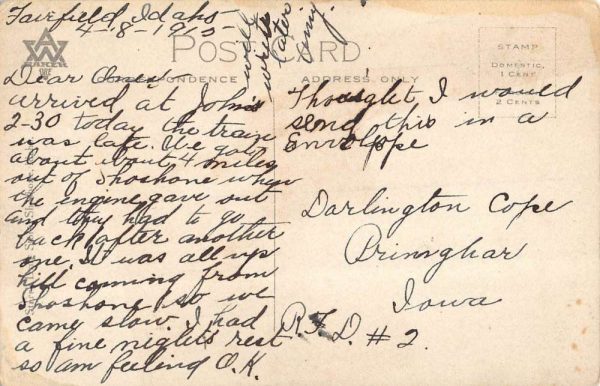 Fairfield, Idaho
4-8-1915-
will
write
later.
Amy.
POST CARD
CORRESPONDENCE
ADDRESS ONLY
STAMP
DOMESTIC,
1 CENT
2 CENTS
Dear Ones
arrived at John's
2-30 today the train
was late. We got
about about 4 miles
out of Shoshone when
the engine gave out
and they had to go
back after another
one. It was all up
hill coming from
Shoshone so we
came slow. I had
a fine nights rest
so am feeling O.K.
Thought I would
send this in a
Envelope
Darlington Cope
Primghar
Iowa
R.F.D. #2.